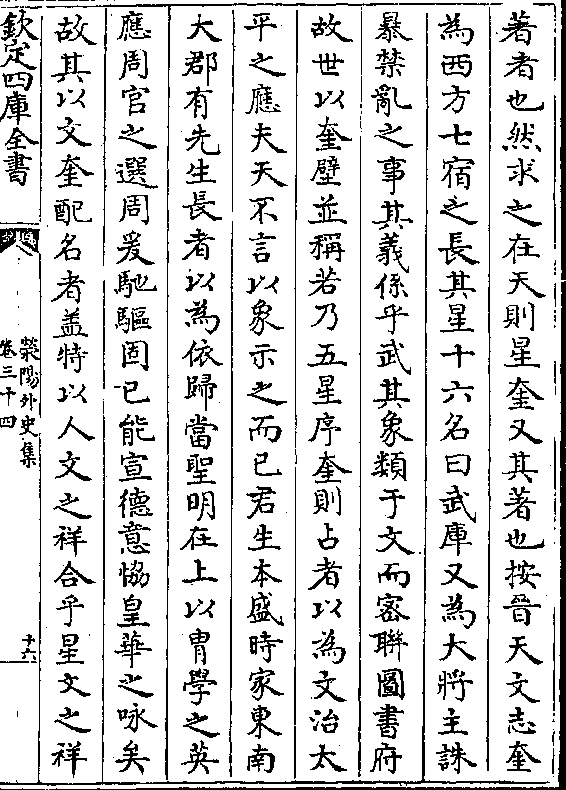 著者也然求之在天則星奎又其著也按晉天文志奎
為西方七宿之長其星十六名曰武庫又為大將主誅
暴禁亂之事其義係乎武其象類于文而密聯圖書府
故世以奎壁並稱若乃五星序奎則占者以為文治太
平之應夫天不言以象示之而已君生本盛時家東南
大郡有先生長者以為依歸當聖明在上以胄學之英
應周官之選周爰馳驅固已能宣德意恊皇華之咏矣
故其以文奎配名者盖特以人文之祥合乎星文之祥
欽定四庫全書
滎陽外史集
卷三十四
十六